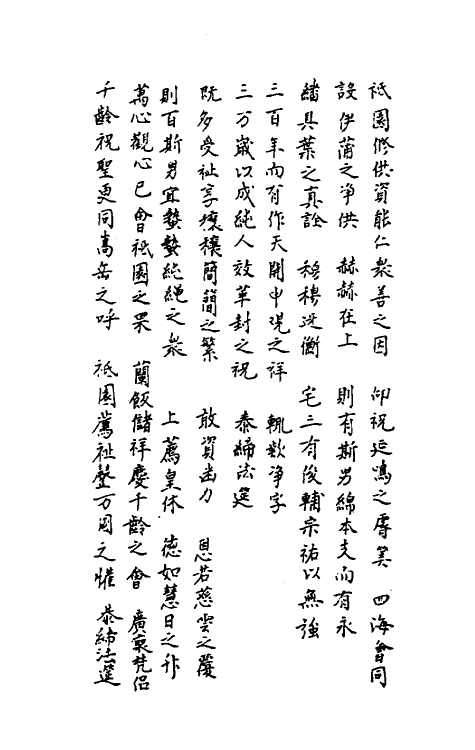 祇園修供資能仁衆善之因 仰祝延鴻之壽筭 四海會同
設伊蒲之净供 赫赫在上 則有斯男綿本支而有永
繙具葉之真詮 穆穆迓衡 宅三有俊輔宗祐以無強
三百年而有作天開申現之祥 輒歎淨字
三万歲以成純人效華封之祝 泰締法筵
既多受祉享穰穰簡簡之繁 敢資幽力 恩若慈雲之覆
則百斯男宜蟄蟄純繩之衆 上薦皇休 德如慧日之升
萬心觀心已會祇園之果 蘭飯儲祥慶千齡之會 廣裒梵侣
千齡祝聖更同嵩岳之呼 祇園薦祉罄万囯之懽 恭締法筵